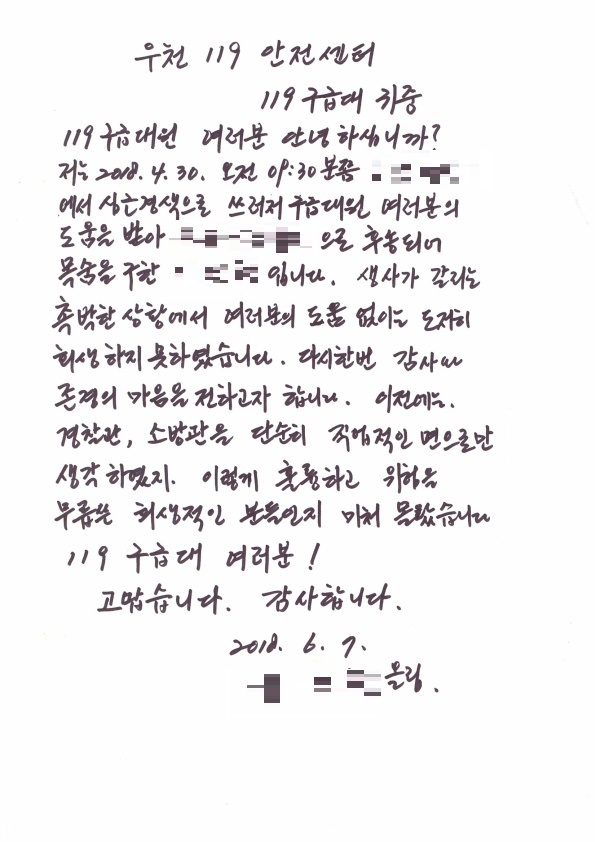 우천 119 안전센터
119 구급대 귀중
119 구급대원 여러분 안녕하십니까?
저는 2018. 4. 30. 오전 09:30분쯤
에서 심근경색으로 쓰러져 구급대원 여러분의
도움을 받아 으로 후송되어
목숨을 구한 입니다. 생사가 갈리는
촉박한 상황에서 여러분의 도움 없이는 도저히
회생하지 못하였습니다. 다시한번 감사와
존경의 마음을 전하고자 합니다. 이전에는.
경찰관, 소방관을 단순히 직업적인 면으로만
생각하였지. 이렇게 훌륭하고 위험을
무릅쓴 희생적인 분들인지 미처 몰랐습니다
119 구급대 여러분!
고맙습니다. 감사합니다.
2018. 6. 7.
올림.